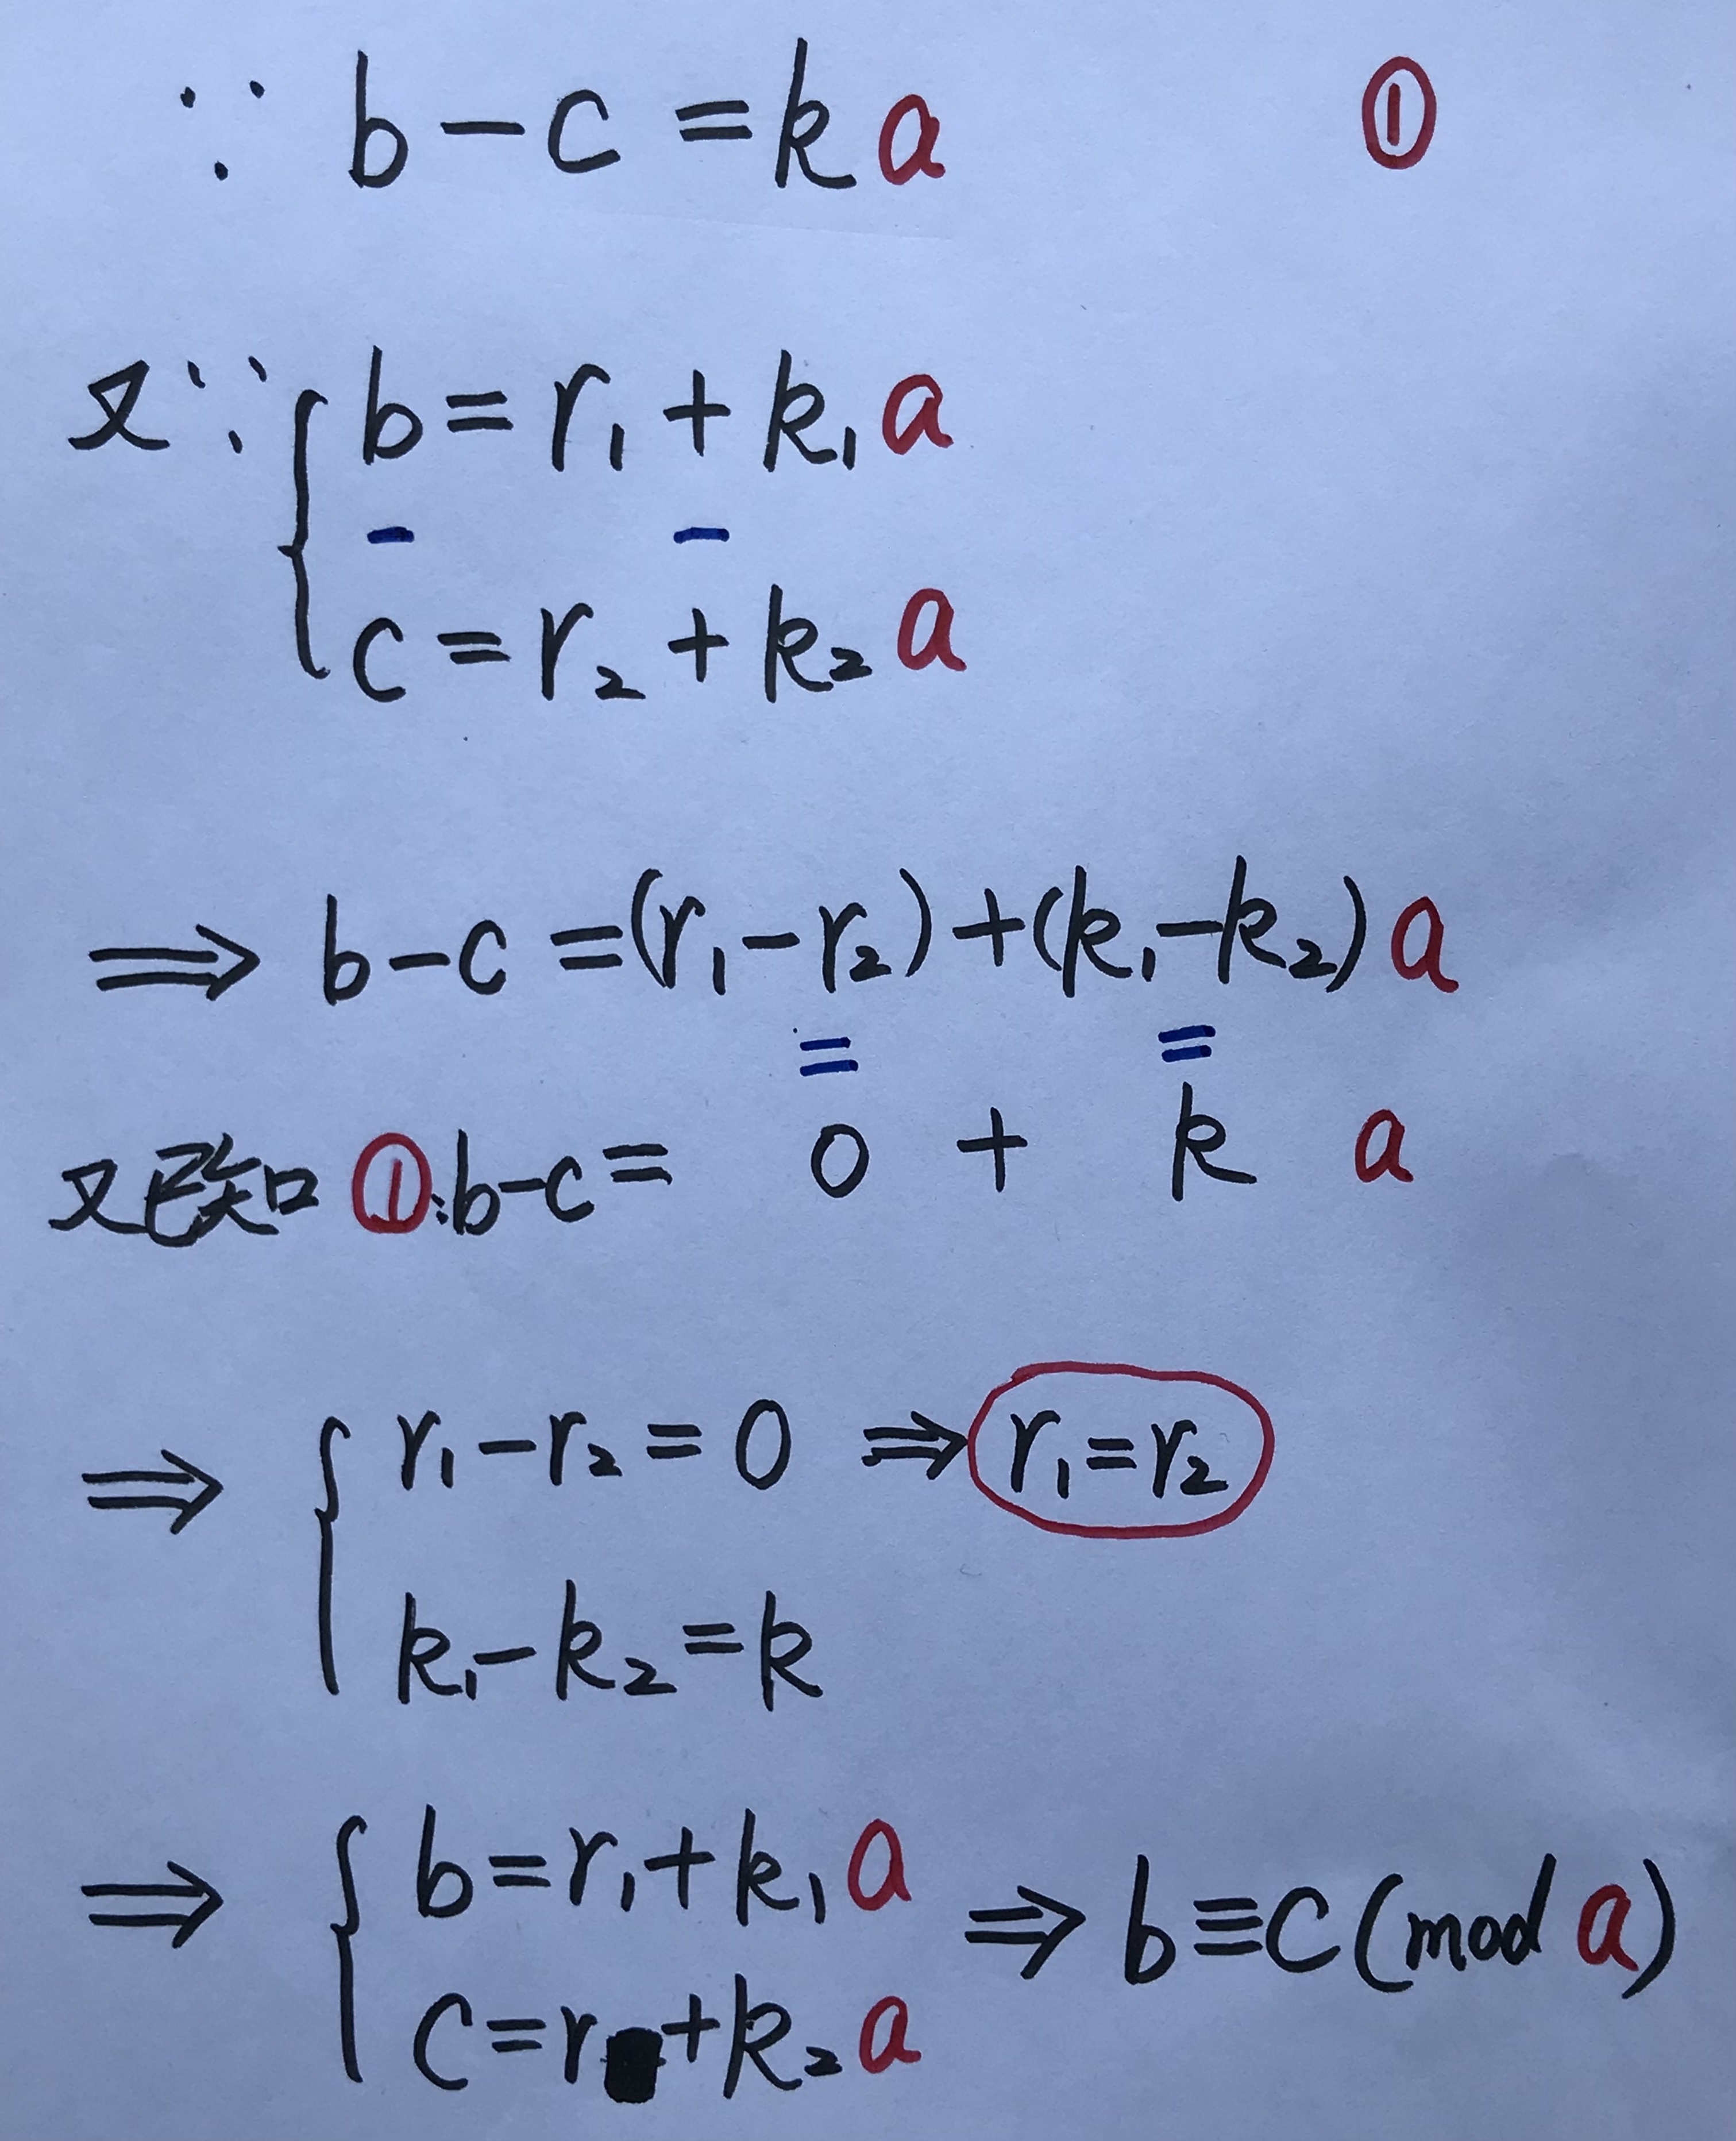 ∵ b-c=ka ①
又∵ { b=r₁+k₁a
- -
c=r₂+k₂a
⇒ b-c=(r₁-r₂)+(k₁-k₂)a
= =
又已知①:b-c= 0 + k a
⇒ { r₁-r₂=0 ⇒ r₁=r₂
k₁-k₂=k
⇒ { b=r₁+k₁a ⇒ b≡c(mod a)
c=r +k₂a